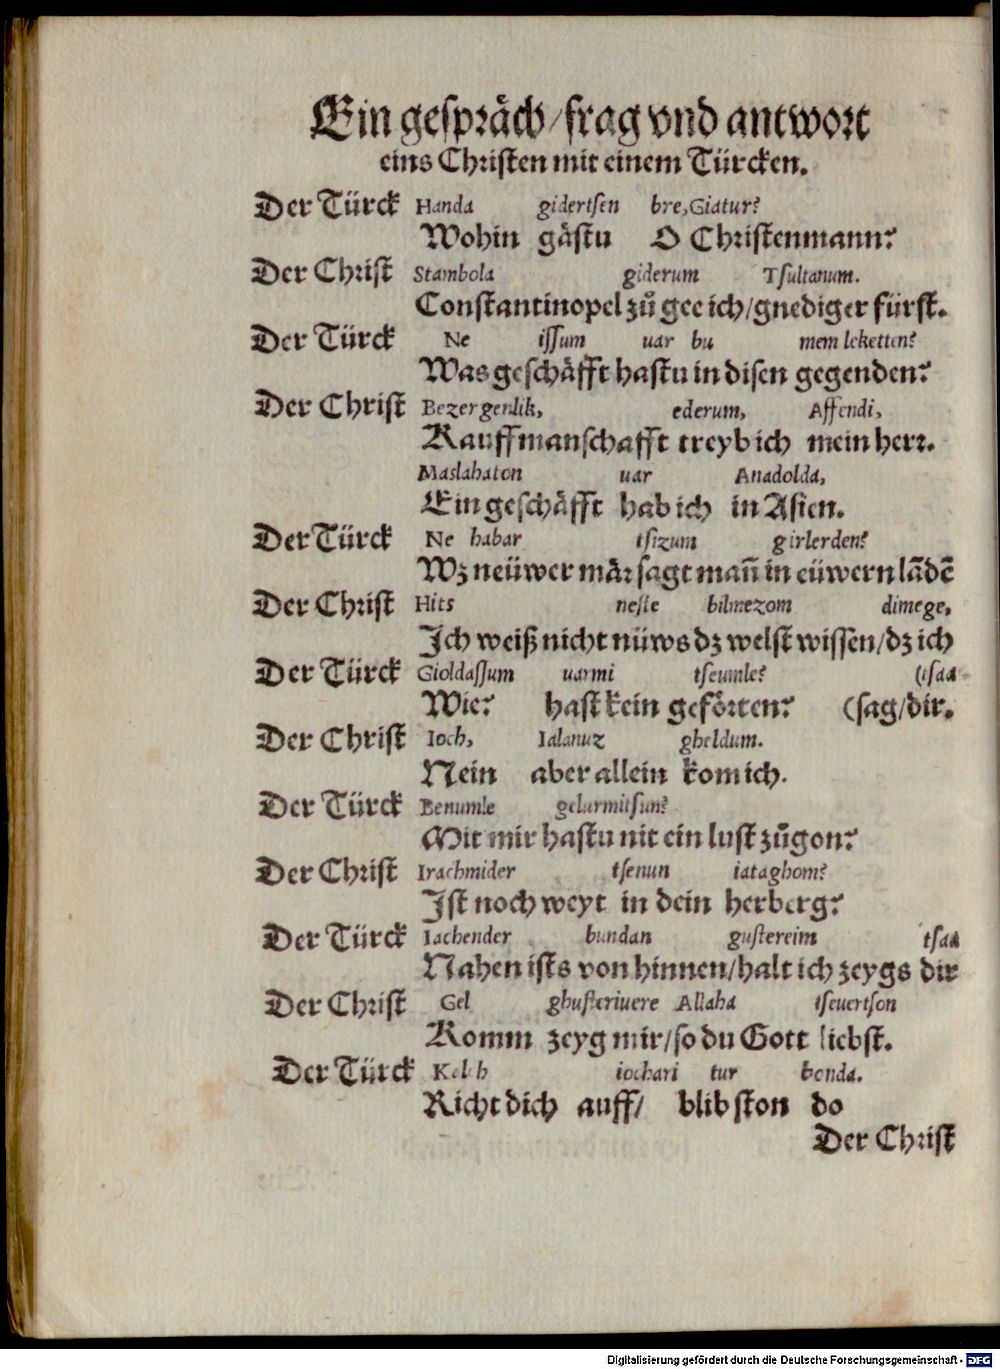 Ein gespräch/frag vnd antwort
eins Christen mit einem Türcken.
Der Türck Handa gidertſen bre,Giatur?
Wohin gåſtu O Christenmann?
Der Christ Stambola giderum Tſultanum.
Constantinopel zů gee ich/gnediger fürst.
Der Türck Ne iſſum uar bu memleketten?
Was geſchåfft haſtu in diſen gegenden?
Der Christ Bezergenlik, ederum, Affendi,
Kauffmanſchafft treyb ich mein herr.
Maslahaton uar Anadolda,
Ein geſchåfft hab ich in Aſien.
Der Türck Ne habar tſizum girlerden?
Wz neüwer mår sagt mañ in eüwern lādē
Der Christ Hits neſte bilmezom dimege,
Ich weiß nicht nüws dz welſt wiſſen/dz ich
Der Türck Gioldaſſum uarmi tſeumle? (tſaa
Wie? haſt kein geförten? (sag/dir.
Der Christ Ioch, Ialanuz gheldum.
Nein aber allein kom ich.
Der Türck Benumle gelurmitſun?
Mit mir haſtu nit ein luſt zůgon?
Der Christ Irachmider tſenun iataghom?
Iſt noch weyt in dein herberg?
Der Türck Iachender bundan guſtereim tſaa
Nahen iſts von hinnen/halt ich zeygs dir
Der Christ Gel ghuſteriuere Allaha tſeuertſon
Komm zeyg mir/ſo du Gott liebſt.
Der Türck iochari tur bonda.
Richt dich auff/ blib ſton do
Der Christ
Digitalisierung gefördert durch die Deutsche Forschungsgemeinschaft - DFG